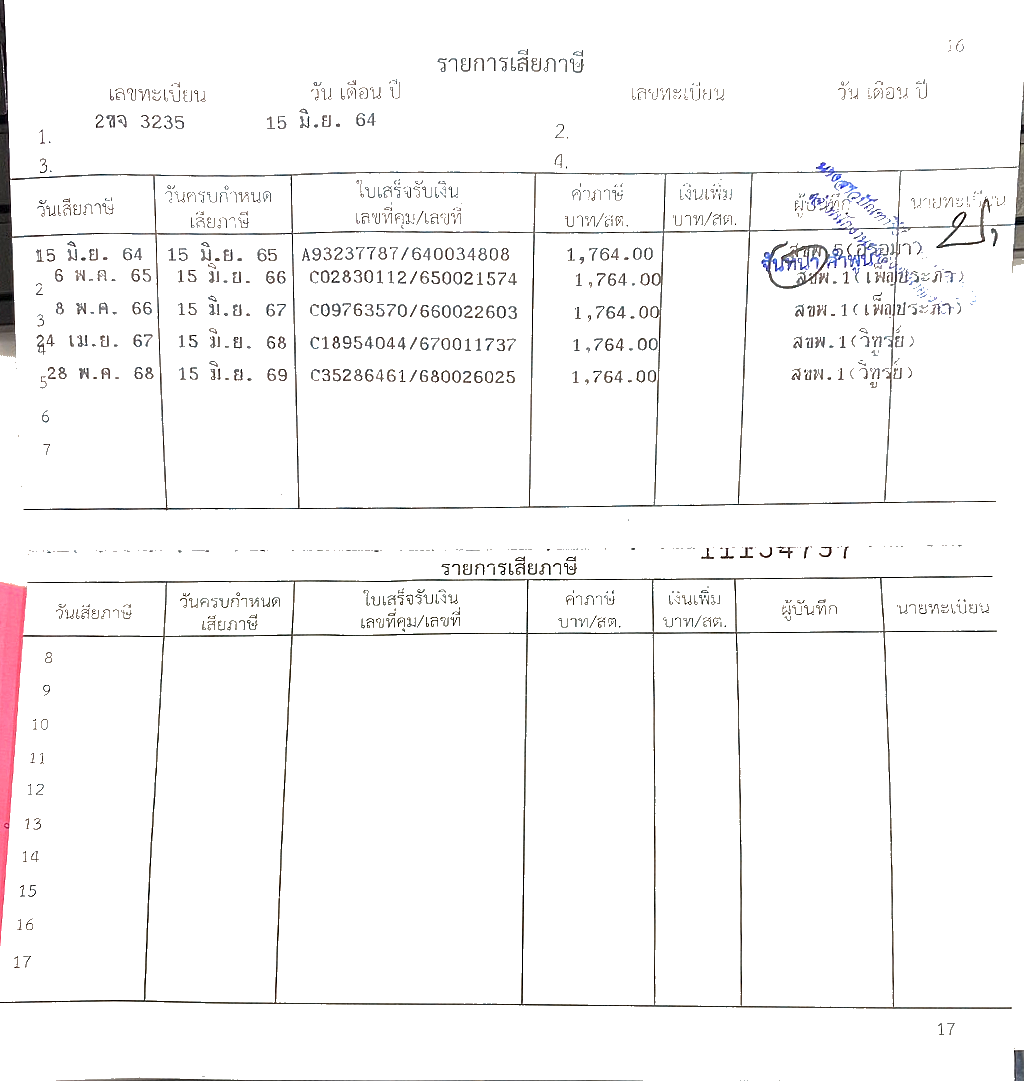 16
รายการเสียภาษี
เลขทะเบียน วัน เดือน ปี เลขทะเบียน วัน เดือน ปี
1. 2ขจ 3235 15 มิ.ย. 64 2.
3. 4.
วันเสียภาษี วันครบกำหนด เสียภาษี ใบเสร็จรับเงิน เลขที่คุม/เลขที่ ค่าภาษี บาท/สต. เงินเพิ่ม บาท/สต. ผู้บันทึก นายทะเบียน
1 15 มิ.ย. 64 15 มิ.ย. 65 A93237787/640034808 1,764.00
2 6 พ.ค. 65 15 มิ.ย. 66 C02830112/650021574 1,764.00 สขพ.1(เพ็ญประภา)
3 8 พ.ค. 66 15 มิ.ย. 67 C09763570/660022603 1,764.00 สขพ.1(เพ็ญประภา)
4 24 เม.ย. 67 15 มิ.ย. 68 C18954044/670011737 1,764.00 สขพ.1(วิทูรย์)
5 28 พ.ค. 68 15 มิ.ย. 69 C35286461/680026025 1,764.00 สขพ.1(วิทูรย์)
6
7
รายการเสียภาษี
วันเสียภาษี วันครบกำหนด เสียภาษี ใบเสร็จรับเงิน เลขที่คุม/เลขที่ ค่าภาษี บาท/สต. เงินเพิ่ม บาท/สต. ผู้บันทึก นายทะเบียน
8
9
10
11
12
13
14
15
16
17
17